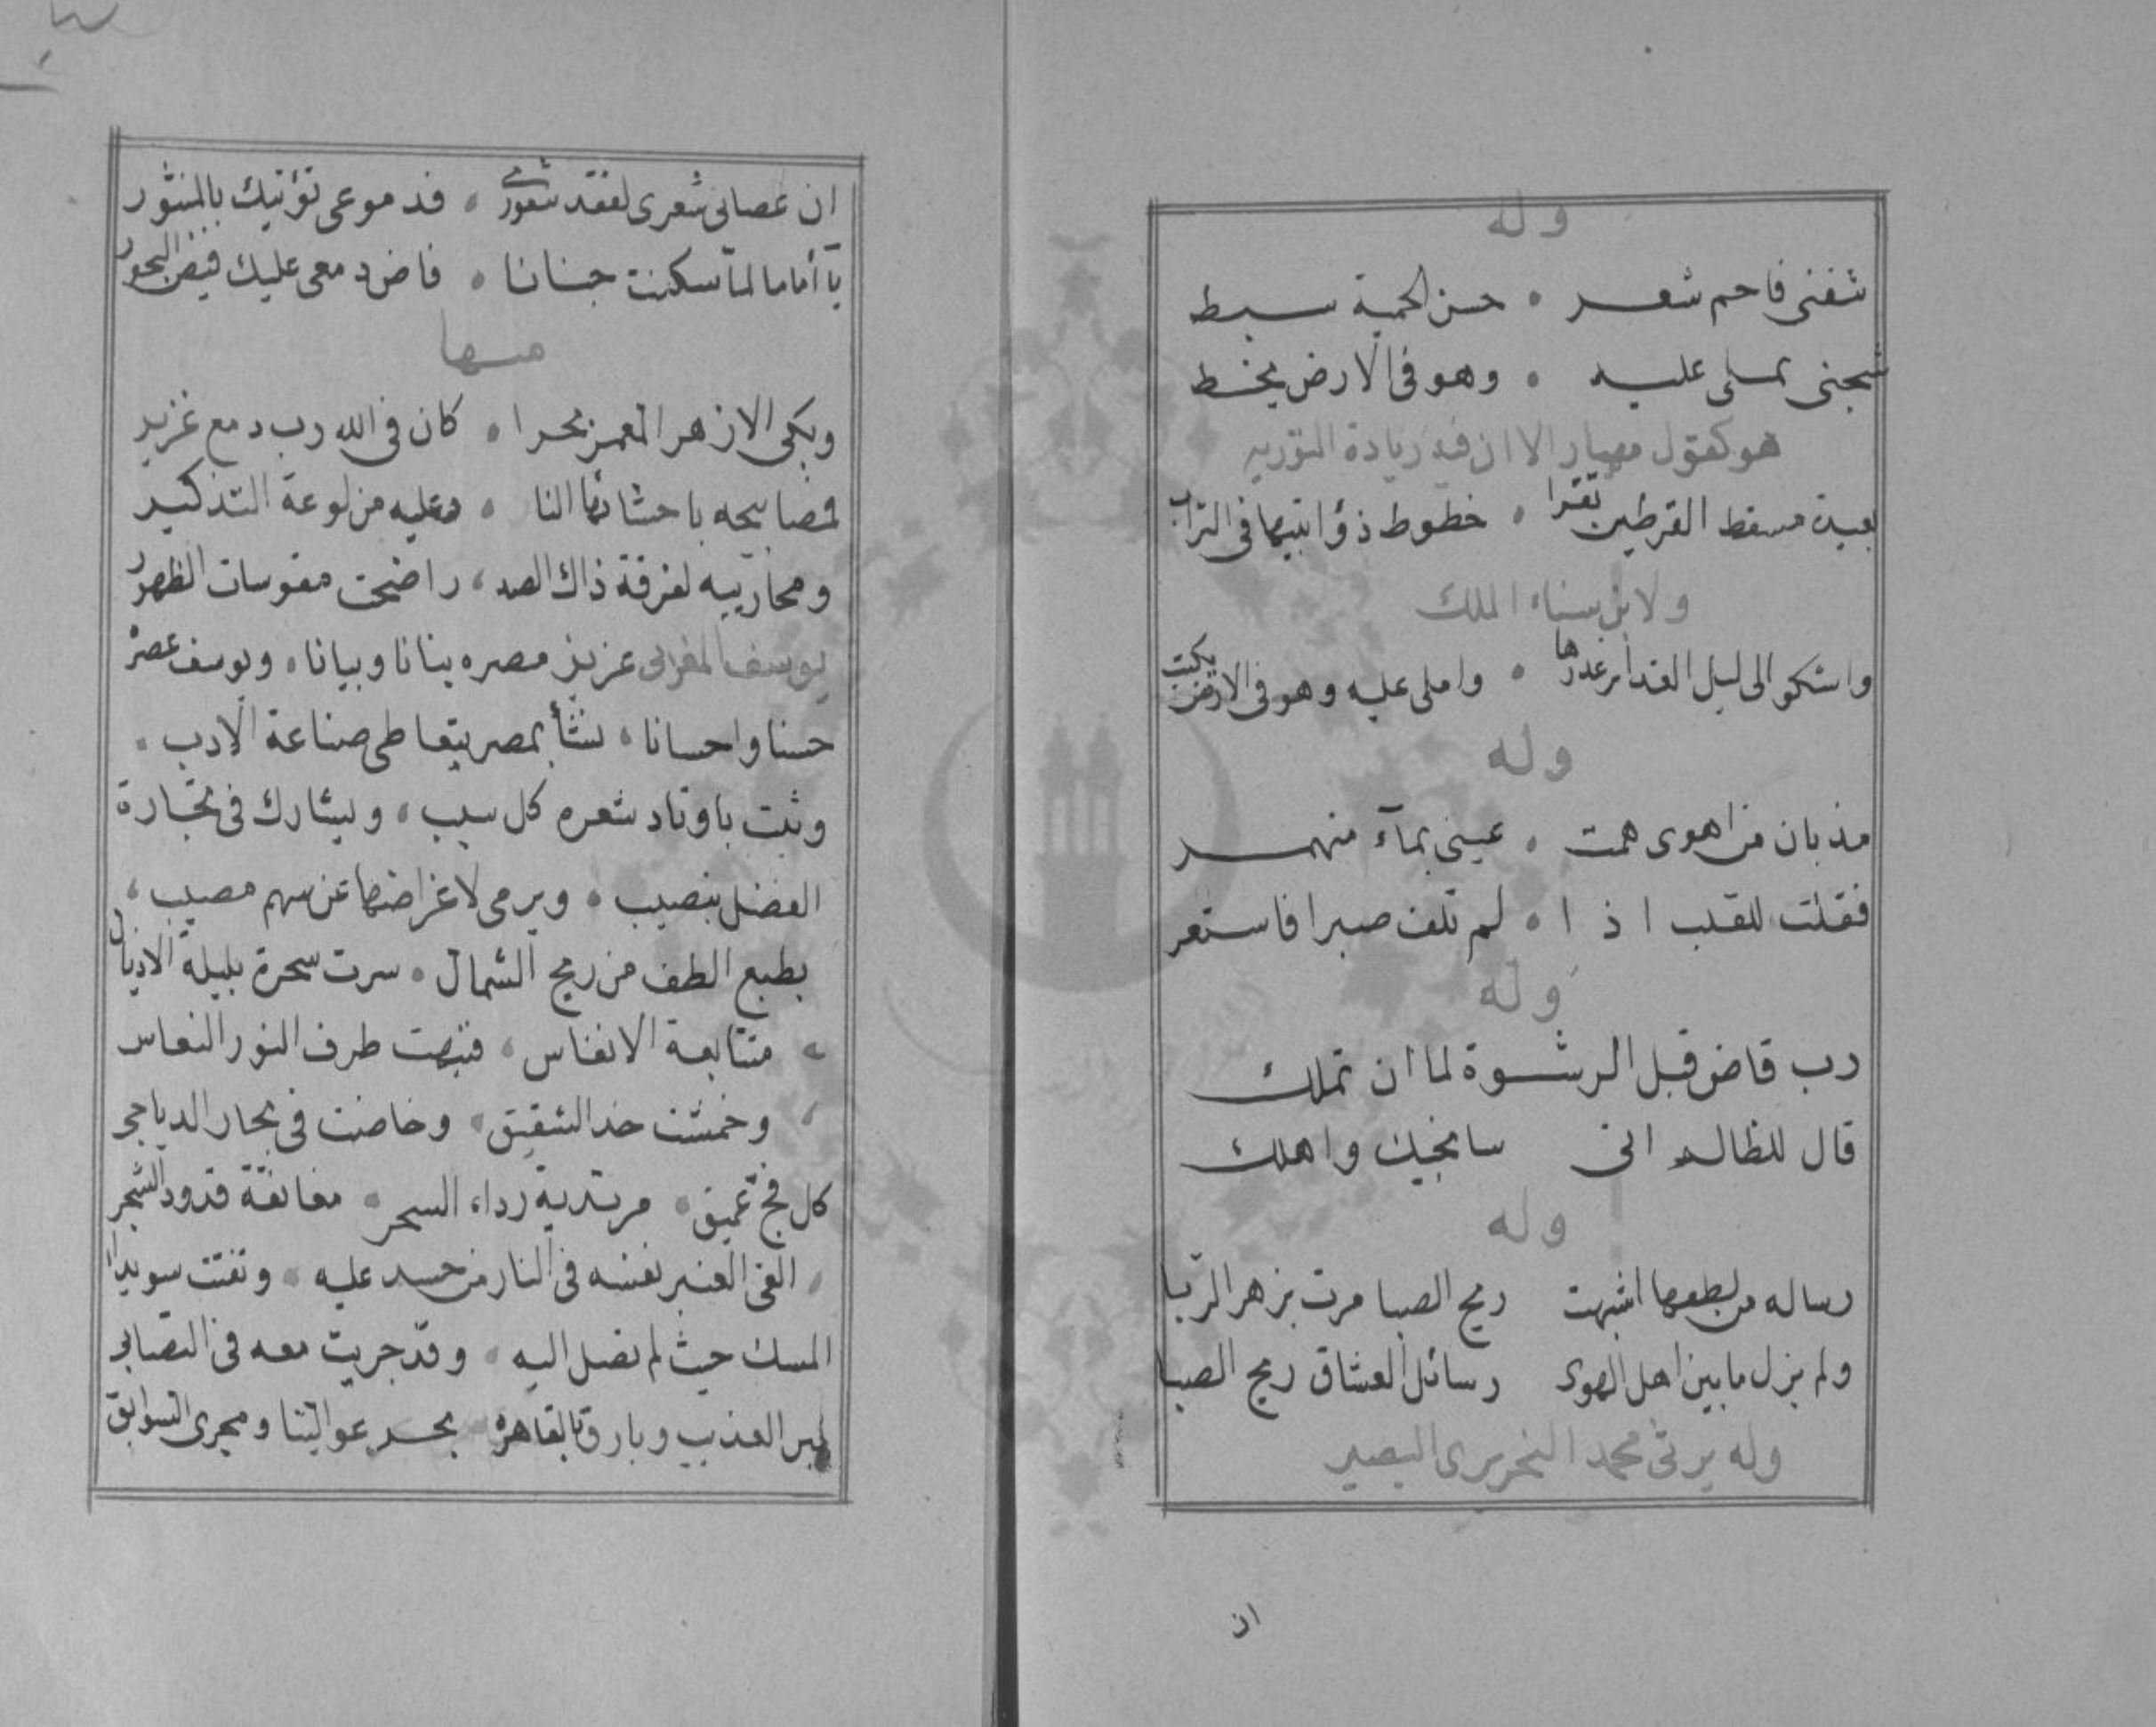 وله
شفنى فاحم شعر ۰ حسن الحمية سبط
شجنى يملى عليه ۰ وهو فى الارض يخط
هو كقول مهيار الا ان فيه زيادة التورية
بعيدة مسقط القرطين تقرا ۰ خطوط ذؤابتيها فى التراب
ولابن سناء الملك
واشكو الى ليل الغدائر غدرها ۰ واملى عليه وهو فى الارض يكتب
وله
مذ بان من اهوى همت ۰ عينى بمآء منهمر
فقلت للقلب اذا ۰ لم تلف صبرا فاستعر
وله
رب قاض قبل الرشوة لما ان تملك
قال للظالم انى سانجيك واهلك
وله
رساله من لطعها اشبهت ريح الصبا مرت بزهر الربا
ولم يزل ما بين اهل الهوى رسائل العشاق ريح الصبا
وله يرثى محمد النحريرى البصير
ان
ان عصانى شعرى لفقد شعورى ۰ فدموعى تؤتيك بالمنثور
يآ أماما لمآ سكنت جنانا ۰ فاض دمعى عليك فيض البحور
منها
وبكى الازهر المعمر بحرا ۰ كان فى الله رب دمع غزير
فمصابيحه باحشائها النا ۰ وعليه من لوعة التذكير
ومحاريبه لفرقة ذاك الصد ، راضحت مقوسات الظهور
يوسف المغربى عزيز مصره بنانا وبيانا ۰ ويوسف عصره
حسنا واحسانا ۰ نشأ بمصر يتعاطى صناعة الادب ۰
وثبت باوتاد شعره كل سبب ، ويشارك فى تجارة
الفضل بنصيب ۰ ويرمى لاغراضها عن سهم مصيب ،
بطبع الطف من ريح الشمال ۰ سرت سحرة بليلة الاذيال
، متتابعة الانفاس ، فنبهت طرف النور النعاس
، وخمشت خد الشقيق ۰ وخاضت فى بحار الدياجى
كل فج عميق ۰ مرتدية رداء السحر ۰ معانقة قدود الشجر
، القى العنبر نفسه فى النار من حسد عليه ۰ وتفتت سويداء
المسك حيث لم تصل اليه ۰ وقد جريت معه فى التصابى
بين العذيب وبارق بالقاهرة بجر عوالينا ومجرى السوابق